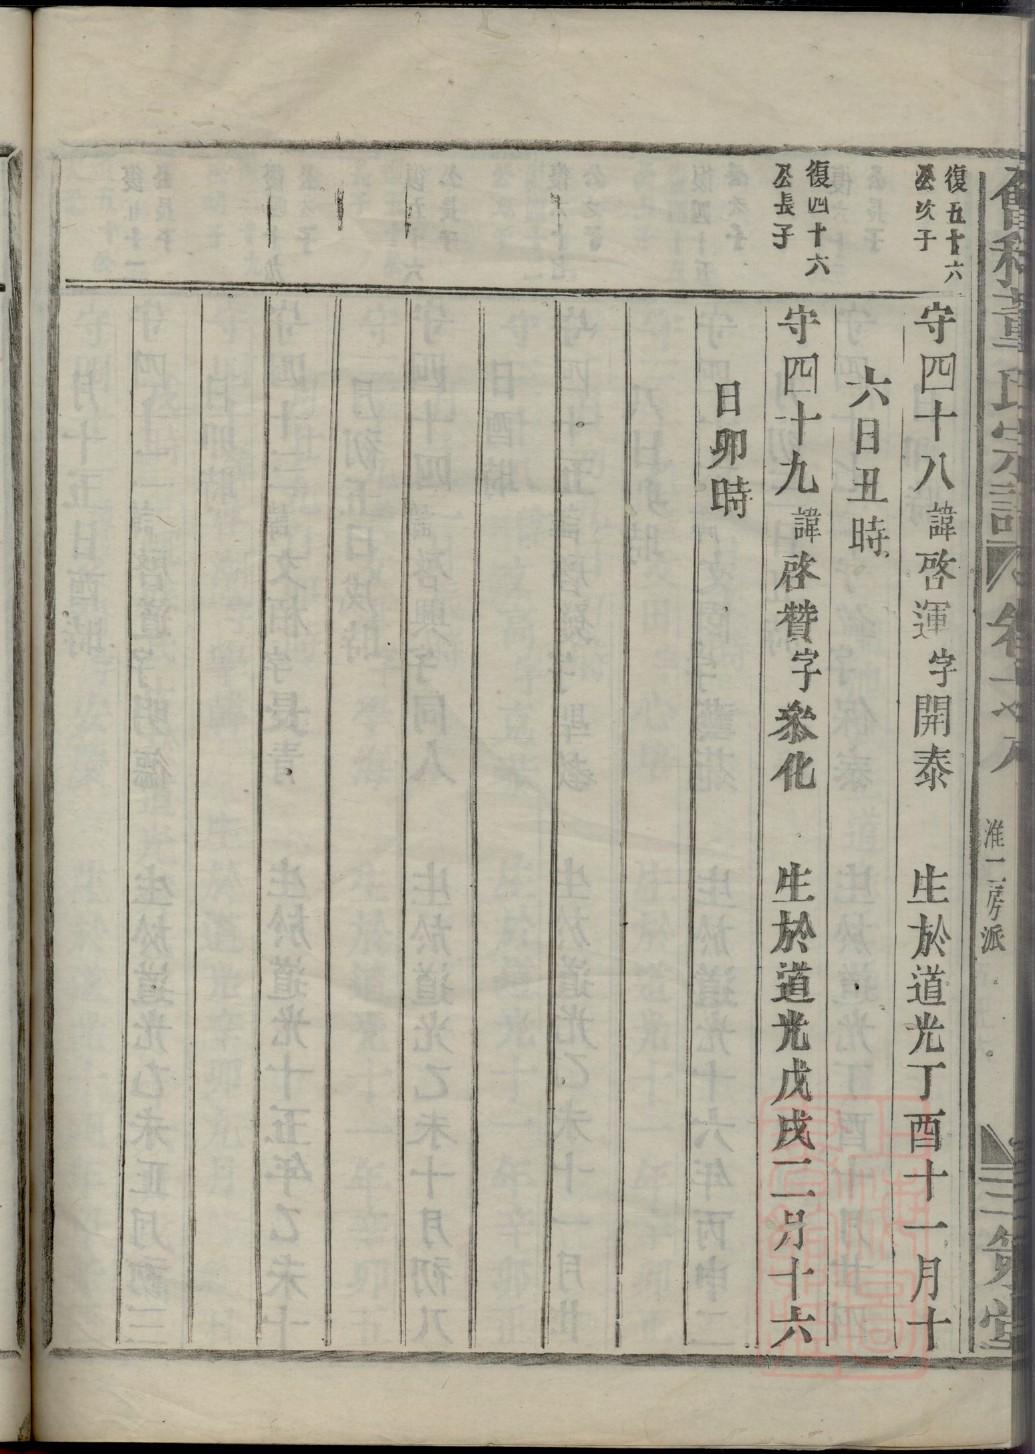 復五十六
公次子
守四十八 諱啓運 字開泰 生於道光丁酉十一月十
六日丑時
復四十六
公長子
守四十九 諱啓贊 字叅化 生於道光戊戌二月十六
日卯時
董氏宗譜
淮一房派
三策堂